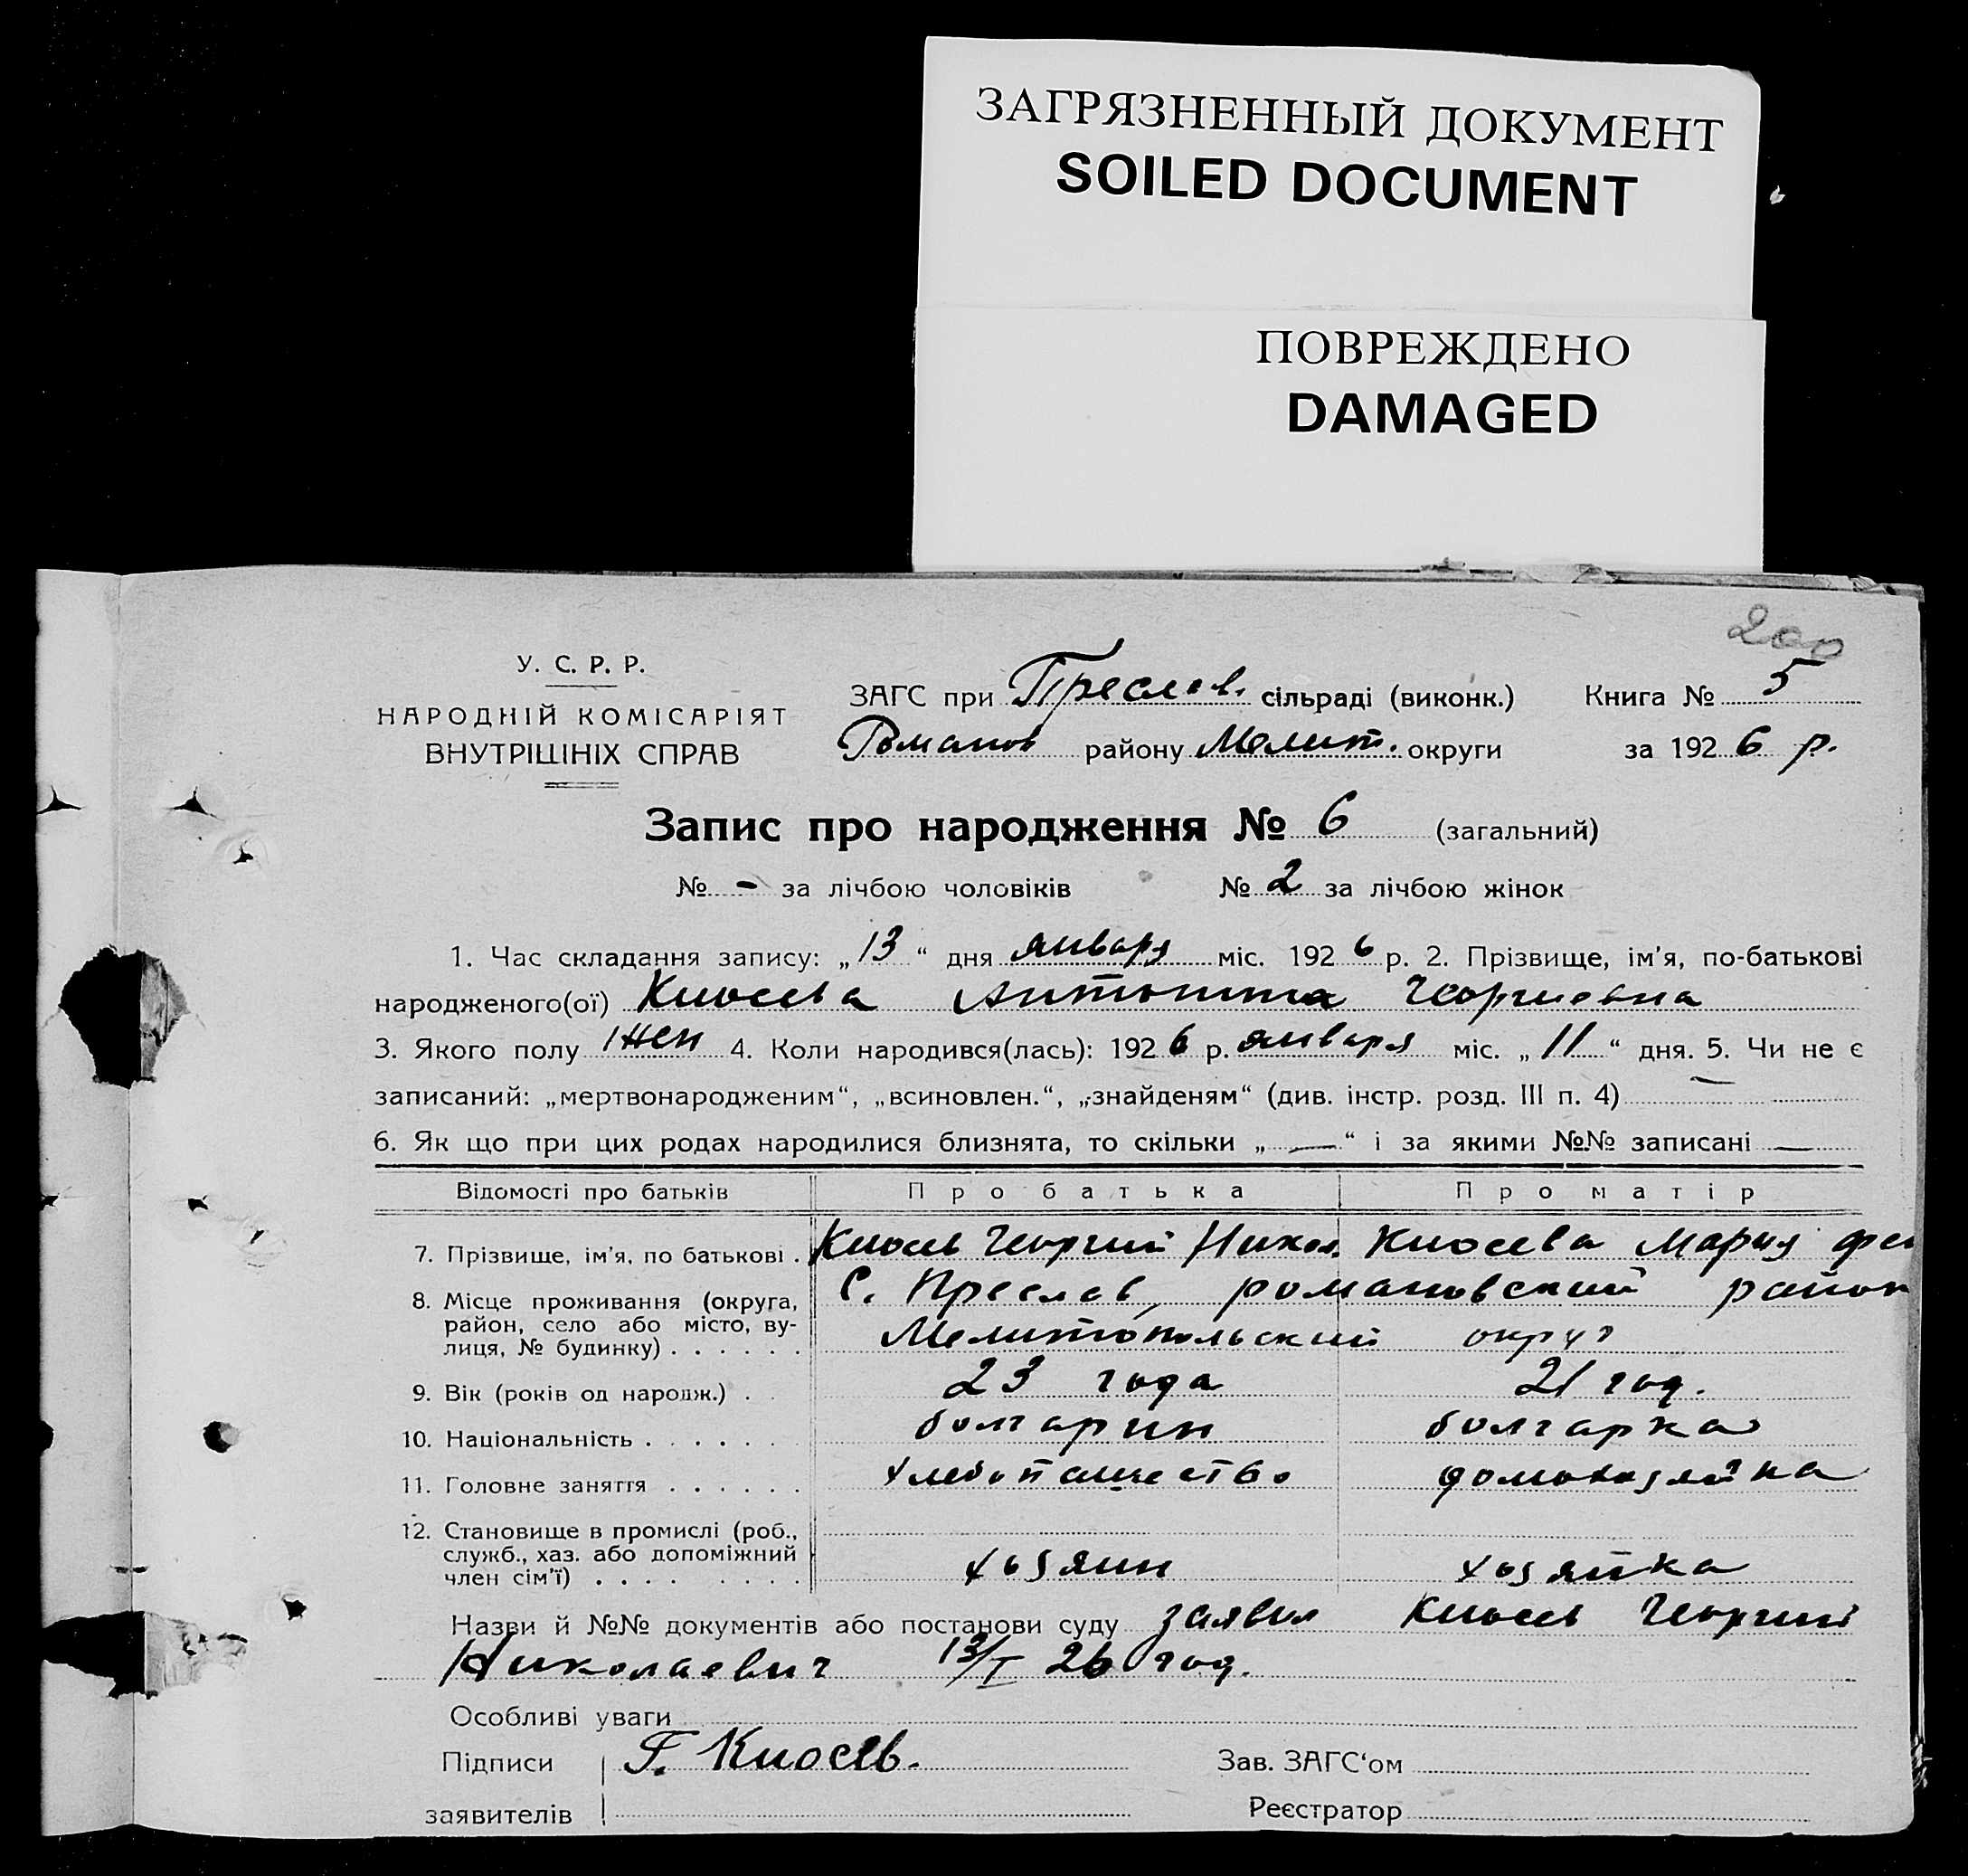 ЗАГРЯЗНЕННЫЙ ДОКУМЕНТ
SOILED DOCUMENT
ПОВРЕЖДЕНО
DAMAGED
200
У. С. Р. Р.
НАРОДНІЙ КОМІСАРІЯТ
ВНУТРІШНІХ СПРАВ
ЗАГС при Преслав. сільраді (виконк.) Книга № 5
Романов району Мелит. округи за 1926 р.
Запис про народження № 6 (загальний)
№ - за лічбою чоловіків № 2 за лічбою жінок
1. Час складання запису: „13“ дня января міс. 1926 р. 2. Прізвище, ім’я, по-батькові
народженого(ої) Киосева Антонина Георгиевна
3. Якого полу жен 4. Коли народився(лась): 1926 р. января міс. „11“ дня. 5. Чи не є
записаний: „мертвонародженим“, „всиновлен.“, „знайденям“ (див. інстр. розд. III п. 4) —
6. Як що при цих родах народилися близнята, то скільки „—“ і за якими №№ записані —
Відомості про батьків Про батька Про матір
7. Прізвище, ім’я, по батькові . Киосев Георгий Никол. Киосева Мария Фе
8. Місце проживання (округа, С. Преслав, романовский район
район, село або місто, ву-
лиця, № будинку) . . . . . . Мелитопольский округ
9. Вік (років од народж.) . 23 года 21 год.
10. Національність . . . . . . болгарин болгарка
11. Головне заняття . . . . . . хлебопашество домохозяйка
12. Становище в промислі (роб.,
служб., хаз. або допоміжний
член сім’ї) . . . . . . . . хозяин хозяйка
Назви й №№ документів або постанови суду заявил Киосев Георгий
Николаевич 13/I 26 год.
Особливі уваги
Підписи Г. Киосев. Зав. ЗАГС‘ом
заявителів Реєстратор